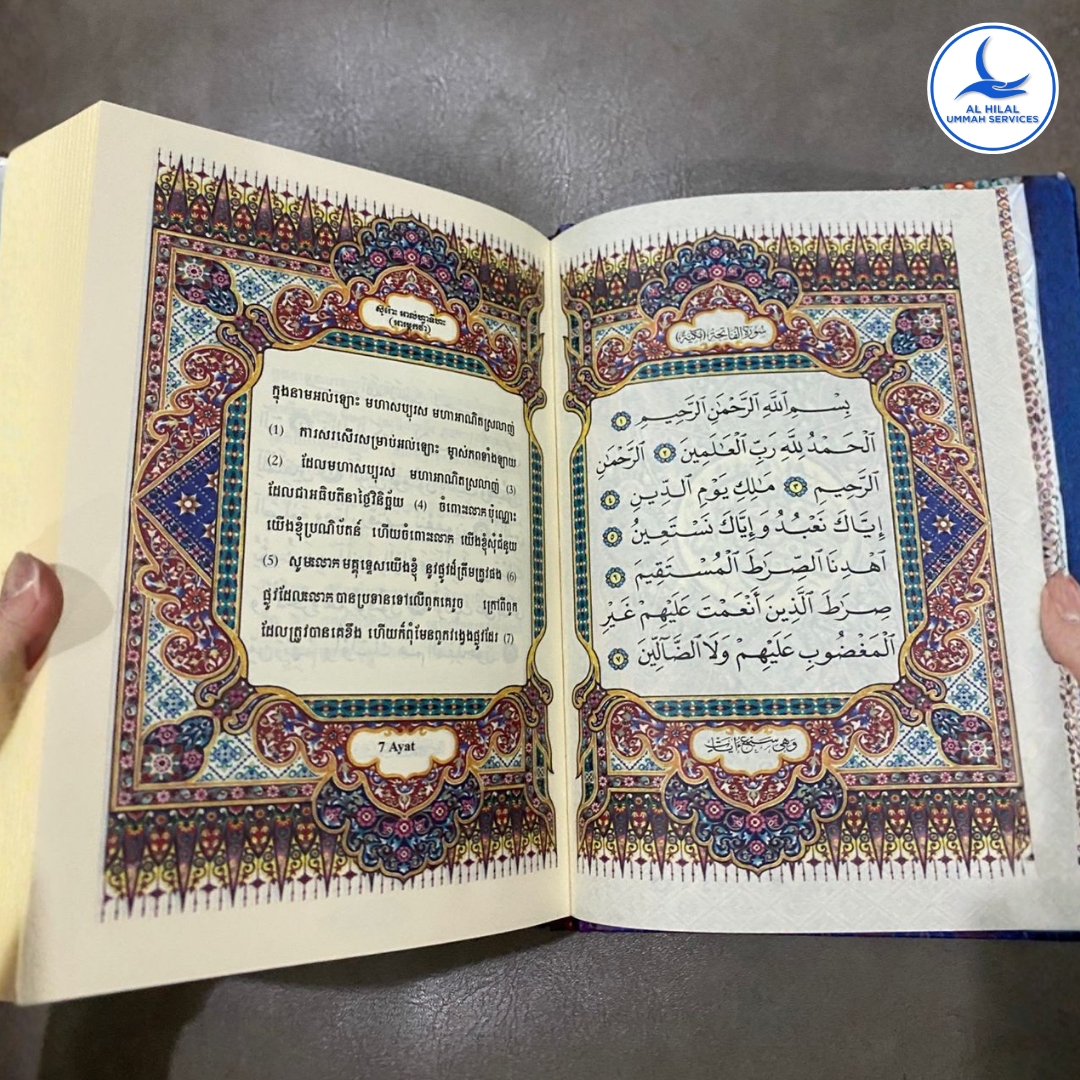 AL HILAL
UMMAH SERVICES
ស៊ូរ៉ោះ អាល់ហ្វាទីហះ
(អារម្ភកថា)
ក្នុងនាមអល់ឡោះ មហាសប្បុរស មហាអាណិតស្រលាញ់
(1) ការសរសើរសម្រាប់អល់ឡោះ ម្ចាស់ភពទាំងឡាយ
(2) ដែលមហាសប្បុរស មហាអាណិតស្រលាញ់ (3)
ដែលជាអធិបតីនាថ្ងៃវិនិច្ឆ័យ (4) ចំពោះលោកប៉ុណ្ណោះ
យើងខ្ញុំប្រណិប័តន៍ ហើយចំពោះលោក យើងខ្ញុំសុំជំនួយ
(5) សូមលោកមគ្គុទ្ទេសយើងខ្ញុំ នូវផ្លូវដ៏ត្រឹមត្រូវផង (6)
ផ្លូវដែលលោកបានប្រទានទៅលើពួកគេរួច ក្រៅពីពួក
ដែលត្រូវបានគេខឹង ហើយក៏ពុំមែនពួកវង្វេងផ្លូវដែរ (7)
7 Ayat
سُورَةُ الْفَاتِحَةِ (مَكِّيَّة)
بِسْمِ اللَّهِ الرَّحْمَٰنِ الرَّحِيمِ ١
الْحَمْدُ لِلَّهِ رَبِّ الْعَالَمِينَ ٢ الرَّحْمَٰنِ
الرَّحِيمِ ٣ مَالِكِ يَوْمِ الدِّينِ ٤
إِيَّاكَ نَعْبُدُ وَإِيَّاكَ نَسْتَعِينُ ٥
اهْدِنَا الصِّرَاطَ الْمُسْتَقِيمَ ٦
صِرَاطَ الَّذِينَ أَنْعَمْتَ عَلَيْهِمْ غَيْرِ
الْمَغْضُوبِ عَلَيْهِمْ وَلَا الضَّالِّينَ ٧
وَهِيَ سَبْعُ آيَاتٍ